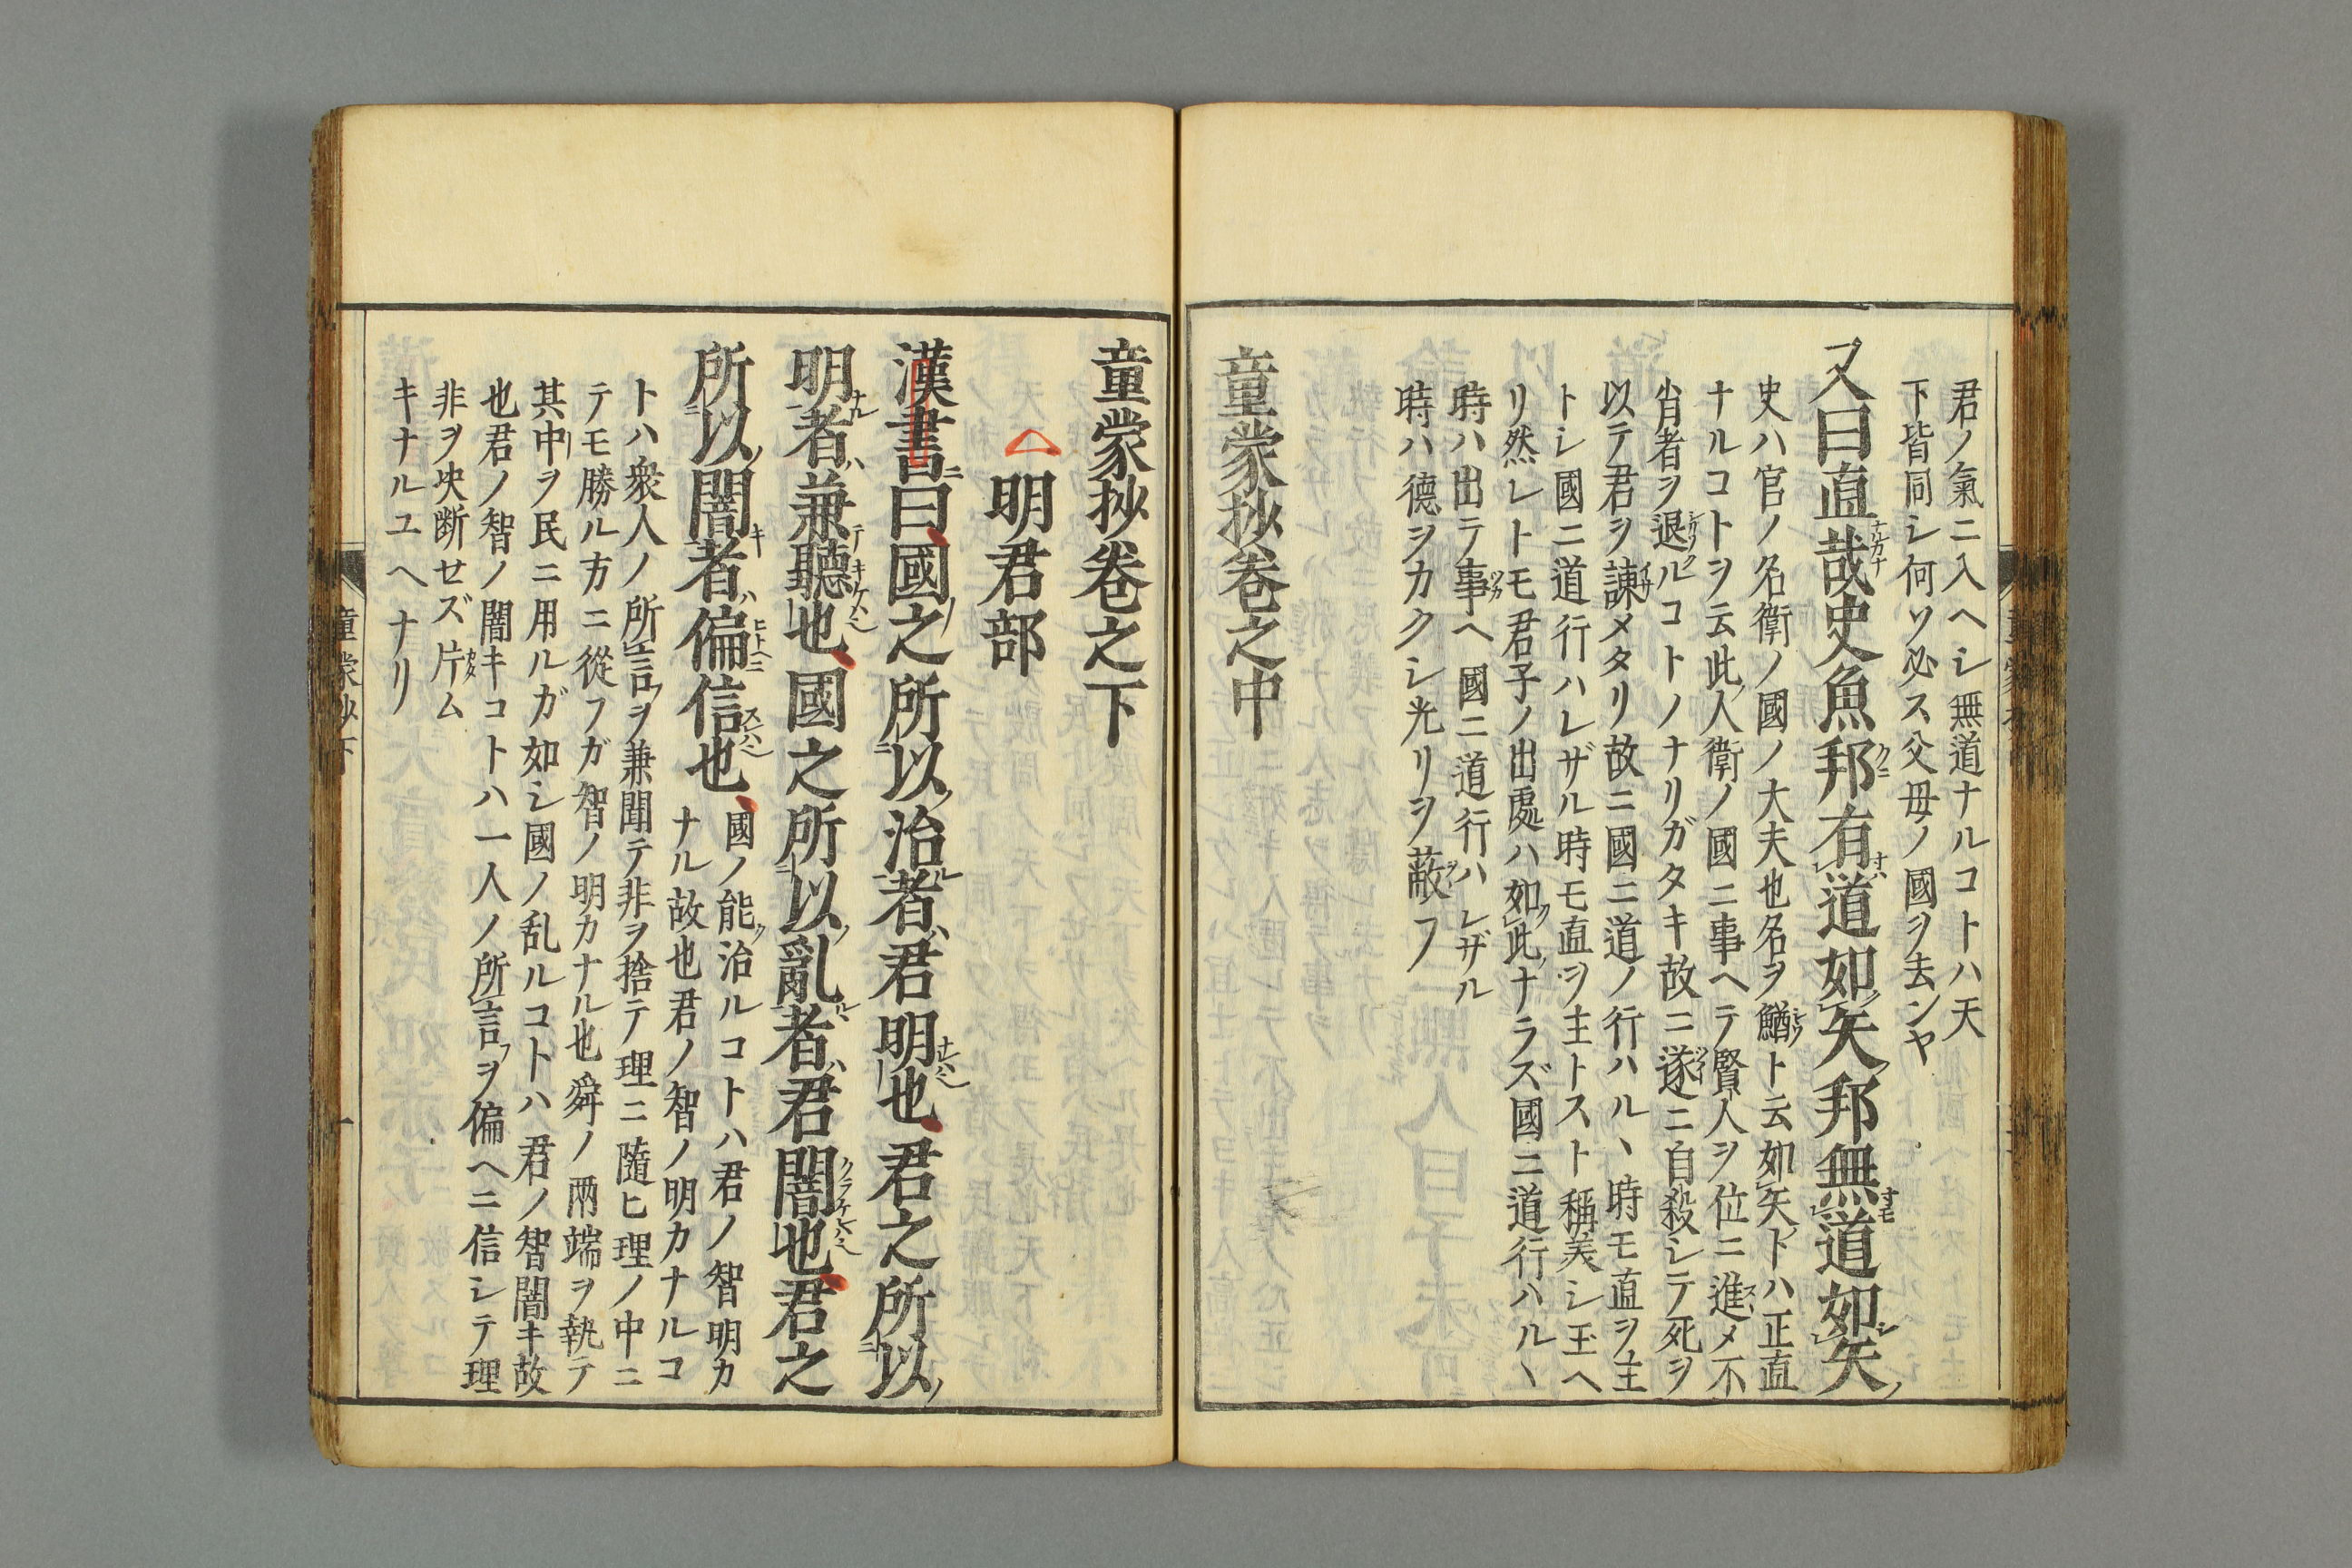 君ノ氣ニ入ヘシ無道ナルコトハ天
下皆同シ何ソ必ス父母ノ國ヲ去ンヤ
又曰直哉史魚邦有道如矢邦無道如矢
史ハ官ノ名衛ノ國ノ大夫也名ヲ鰌ト云如矢トハ正直
ナルコトヲ云此人衛ノ國ニ事ヘテ賢人ヲ位ニ進メ不
肖者ヲ退ルコトノナリガタキ故ニ遂ニ自殺シテ死ヲ
以テ君ヲ諫メタリ故ニ國ニ道ノ行ハル丶時モ直ヲ主
トシ國ニ道行ハレザル時モ直ヲ主トスト稱美シ玉ヘ
リ然レトモ君子ノ出處ハ如此ナラズ國ニ道行ハル丶
時ハ出テ事ヘ國ニ道行ハレザル
時ハ德ヲカクシ光リヲ蔽フ
童蒙抄卷之中
童蒙抄卷之下
△明君部
漢書曰國之所以治者君明也君之所以
明者兼聽也國之所以亂者君闇也君之
所以闇者偏信也
國ノ能治ルコトハ君ノ智明カ
ナル故也君ノ智ノ明カナルコ
トハ衆人ノ所言ヲ兼聞テ非ヲ捨テ理ニ隨ヒ理ノ中ニ
テモ勝ル方ニ從フガ智ノ明カナル也舜ノ兩端ヲ執テ
其中ヲ民ニ用ルガ如シ國ノ乱ルコトハ君ノ智闇キ故
也君ノ智ノ闇キコトハ一人ノ所言ヲ偏ヘニ信シテ理
非ヲ决断セズ片ム
キナルユヘナリ
童蒙抄下
一